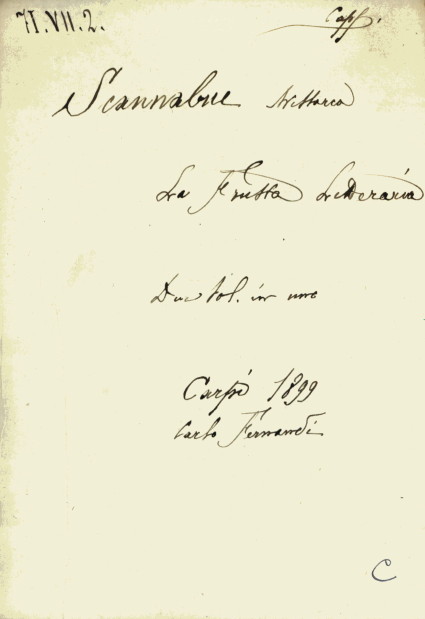 71.VII.2.
Scannabue Aristarco
La Frusta Letteraria
Due Vol. in uno
Carpi 1899
Carlo Fernandi
C